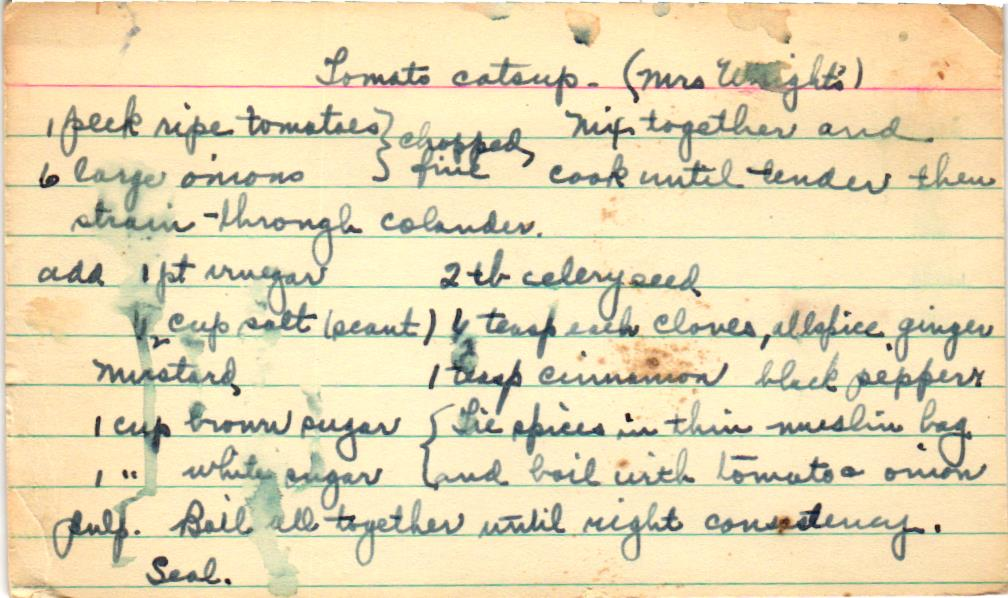 Tomato catsup - (Mrs Wright's)
1 peck ripe tomatoes } chopped, Mix together and
6 large onions } fine cook until tender then
strain through colander.
add 1 pt vinegar 2 tb celery seed
1/2 cup salt (scant) 1/2 teasp each cloves, allspice, ginger
mustard, 1 teasp cinnamon black pepper
1 cup brown sugar { Tie spices in thin muslin bag
1 " white sugar { and boil with tomato & onion
pulp. Boil all together until right consistency.
Seal.